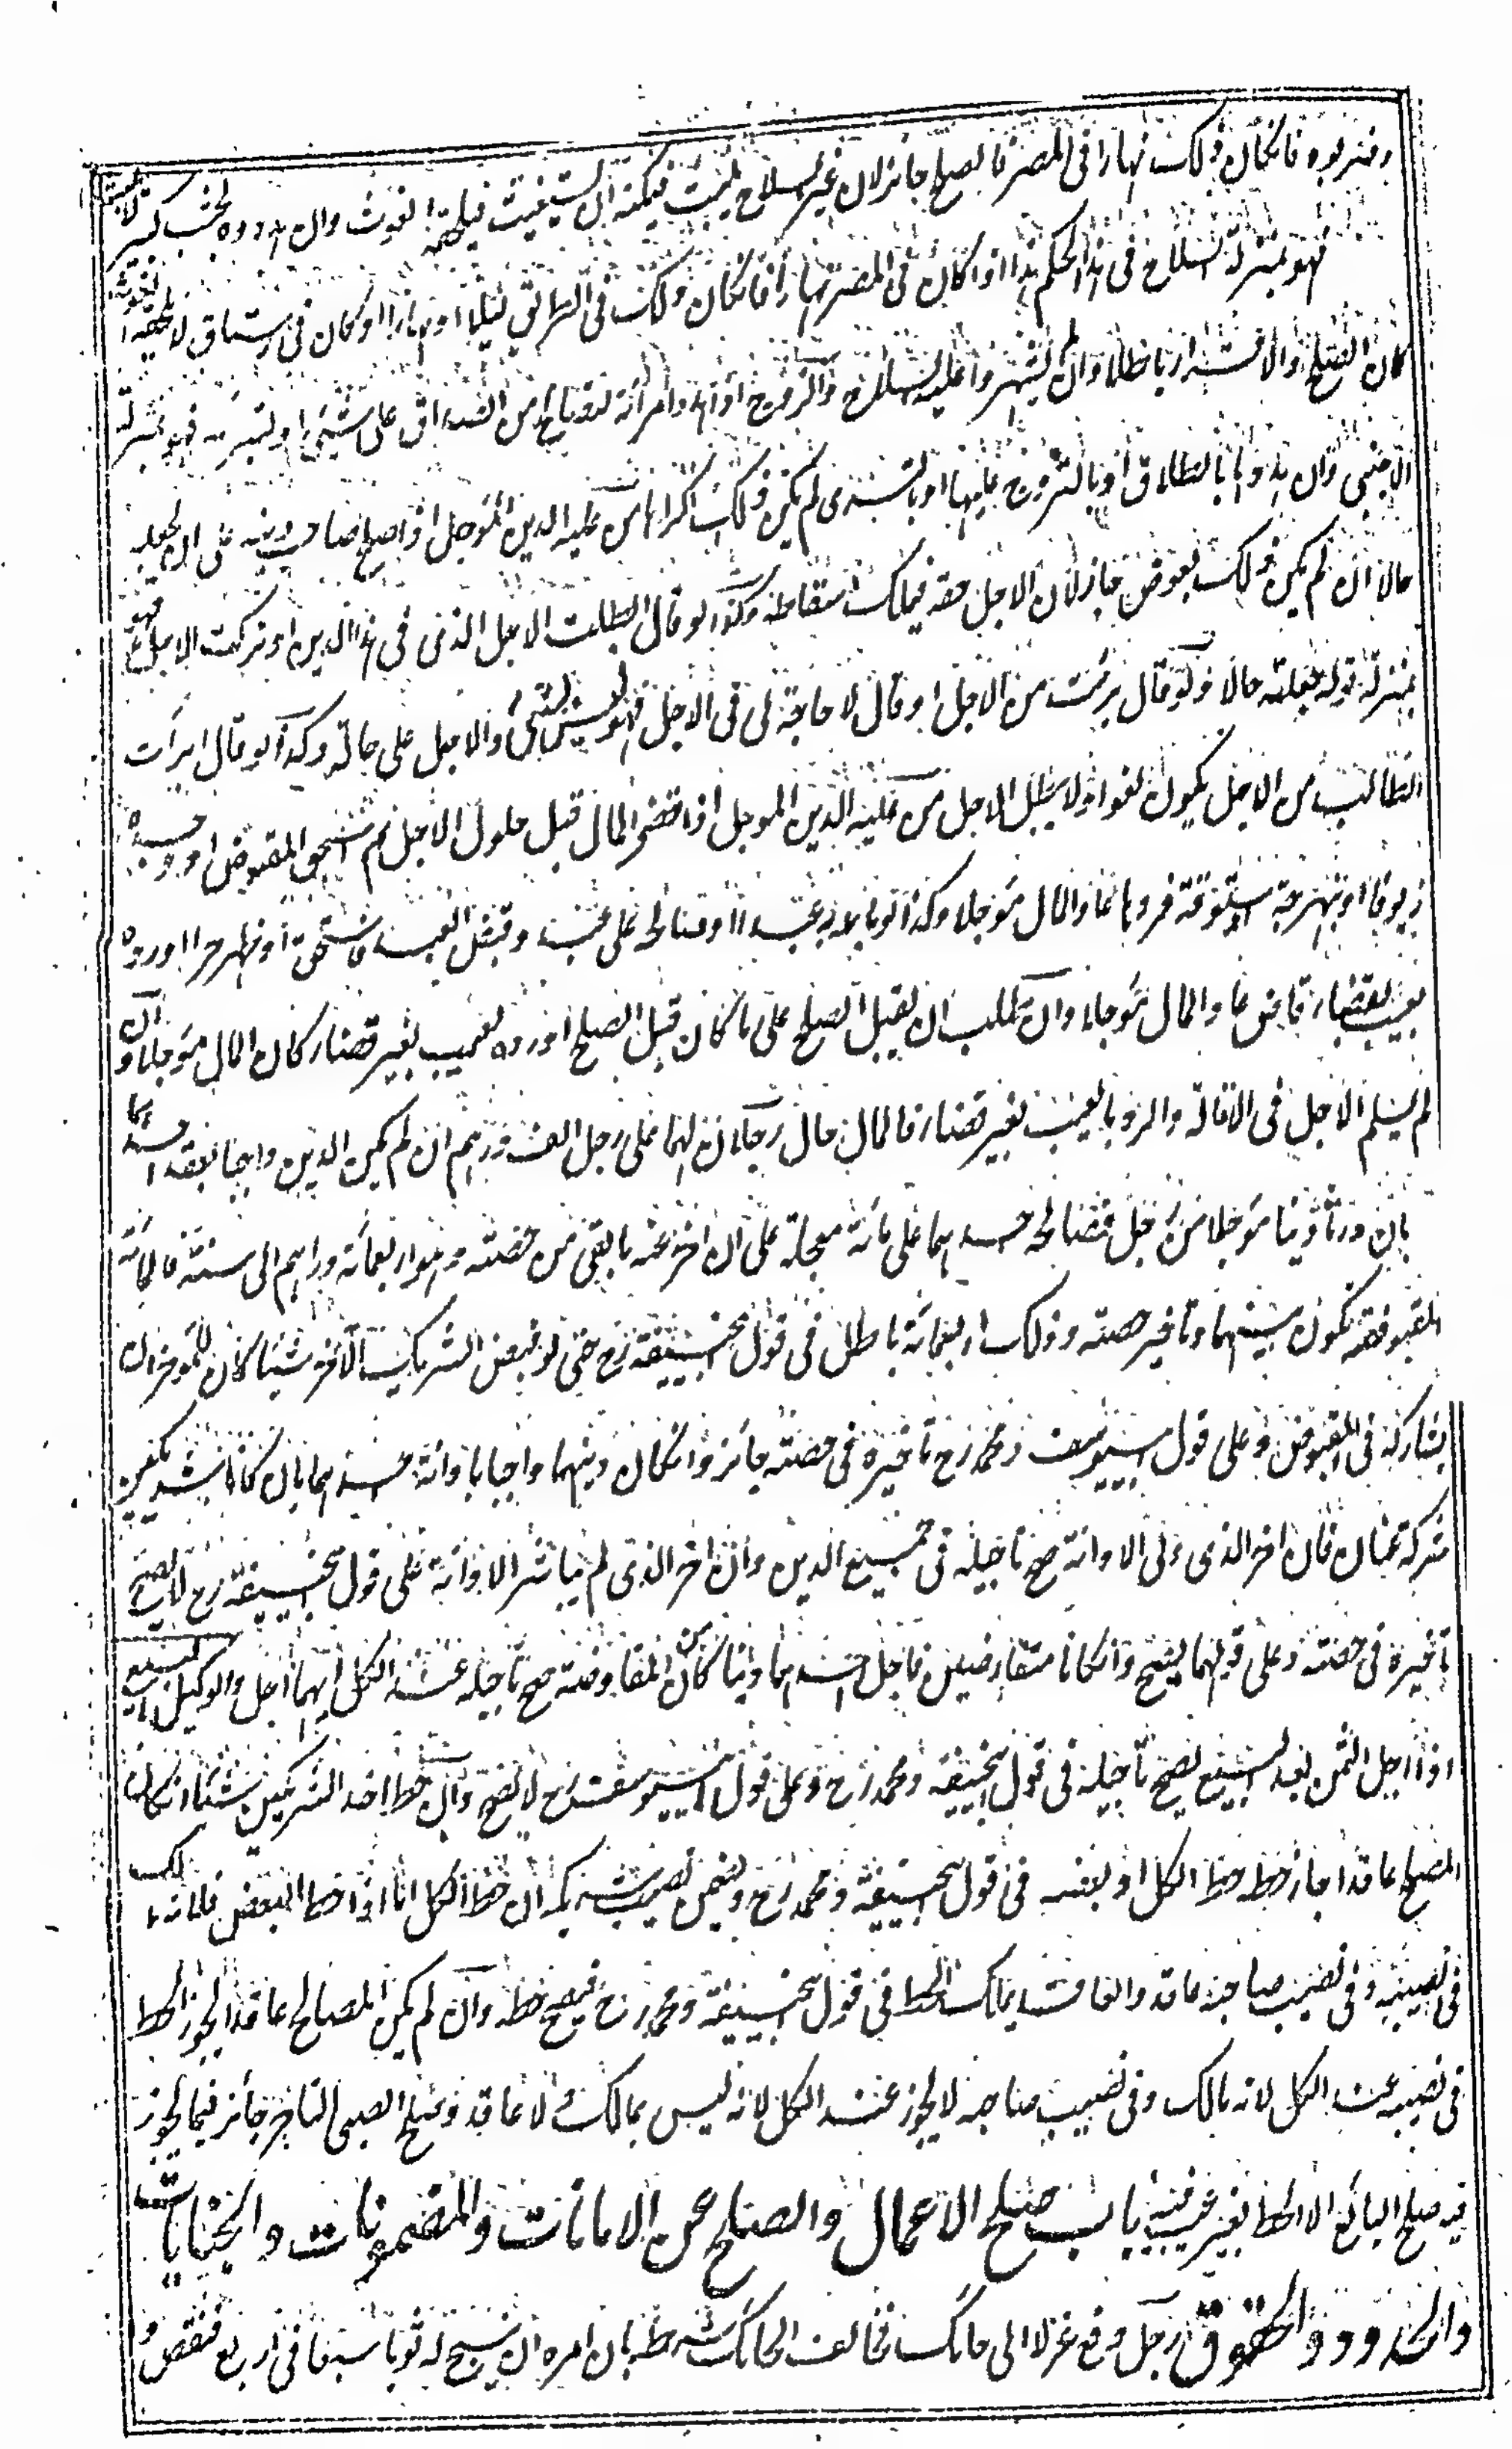 وضربوه فانكان ذلك نهارا فى المصر فالصلح جائز لان غير السلاح يلبث فيمكنه ان يستغيث فيلحقه الغوث وان هددوه بخشب كبير لا يلبث
فهو بمنزلة السلاح فى هذا الحكم هذا اذا كان فى المصر نهارا فانكان ذلك فى الطريق ليلا او نهارا او كان فى رستاق لا يلحقه الغوث
كان الصلح والاقرار باطلا وان لم يشهروا عليه السلاح والزوج اذا هدد امرأته لتصالح من الصداق على شئ او لتبرئه فهو بمنزلة
الاجنبى وان هددها بالطلاق او بالتزوج عليها او بالتسرى لم يكن ذلك اكراها من عليه الدين المؤجل اذا صالح صاحب دينه على ان يجعله
حالا ان لم يكن ذلك بعوض جاز لان الاجل حقه فيملك اسقاطه وكذا لو قال ابطلت الاجل الذى فى هذا الدين او تركت الاجل فهو
بمنزلة قوله جعلته حالا ولو قال برئت من الاجل او قال لا حاجة لى فى الاجل فهو ليس بشئ والاجل على حاله وكذا لو قال ابرأت
الطالب من الاجل يكون لغوا ولا يبطل الاجل من عليه الدين المؤجل اذا قضى المال قبل حلول الاجل ثم استحق المقبوض او وجده
زيوفا او نبهرجة او ستوقة فردها عاد المال مؤجلا وكذا لو باعه به عبدا او صالحه على عبد وقبض العبد فاستحق او ظهر حرا او رده
بعيب بقضاء قاض عاد المال مؤجلا وان طلب ان يقيل الصلح على ما كان قبل الصلح او رده بعيب بغير قضاء كان المال مؤجلا وان
لم يسلم الاجل فى الاقالة والرد بالعيب بغير قضاء فالمال حال رجلان لهما على رجل الف درهم ان لم يكن الدين واجبا بعقد احدهما
بان ورثا دينا مؤجلا من رجل فصالحه احدهما على مائة معجلة على ان اخر عنه ما بقى من حصته وهو اربعمائة دراهم الى سنة فالمائة
المقبوضة تكون بينهما وتأخير حصته وذلك اربعمائة باطل فى قول ابيحنيفة رح حتى لو قبض الشريك الآخر شيئا كان للمؤخر ان
يشاركه فى المقبوض وعلى قول ابييوسف ومحمد رح تأخيره فى حصته جائز وانكان دينهما واجبا بادانة احدهما بان كانا شريكين
شركة عنان فان اخر الذى ولى الادانة صح تأجيله فى جميع الدين وان اخر الذى لم يباشر الادانة على قول ابيحنيفة رح لا يصح
تأخيره فى حصته وعلى قولهما يصح وانكانا متفاوضين فاجل احدهما دينا كان من المفاوضة صح تأجيله عند الكل ايهما اجل والوكيل بالبيع
اذا اجل الثمن بعد البيع يصح تأجيله فى قول ابيحنيفة ومحمد رح وعلى قول ابييوسف رح لا يصح وان حط احد الشريكين شيئا انكان
المصالح عاقدا جاز حطه حط الكل او بعضه فى قول ابيحنيفة ومحمد رح ويضمن نصيب شريكه ان حط الكل اما اذا حط البعض فلانه مالك
فى نصيبه وفى نصيب صاحبه عاقد والعاقد يملك الحط فى قول ابيحنيفة ومحمد رح فيصح حطه وان لم يكن المصالح عاقدا يجوز الحط
فى نصيبه عند الكل لانه مالك وفى نصيب صاحبه لا يجوز عند الكل لانه ليس بمالك ولا عاقد وصلح الصبى التاجر جائز فيما يجوز
فيه صلح البائع الا الحط بغير عيب باب صلح الاعمال والصلح عن الامانات والمضمونات والجنايات
والحدود والحقوق رجل دفع غزلا الى حائك فخالف الحائك شرطه بان امره ان ينسج له ثوبا سبعا فى اربع فنقص او